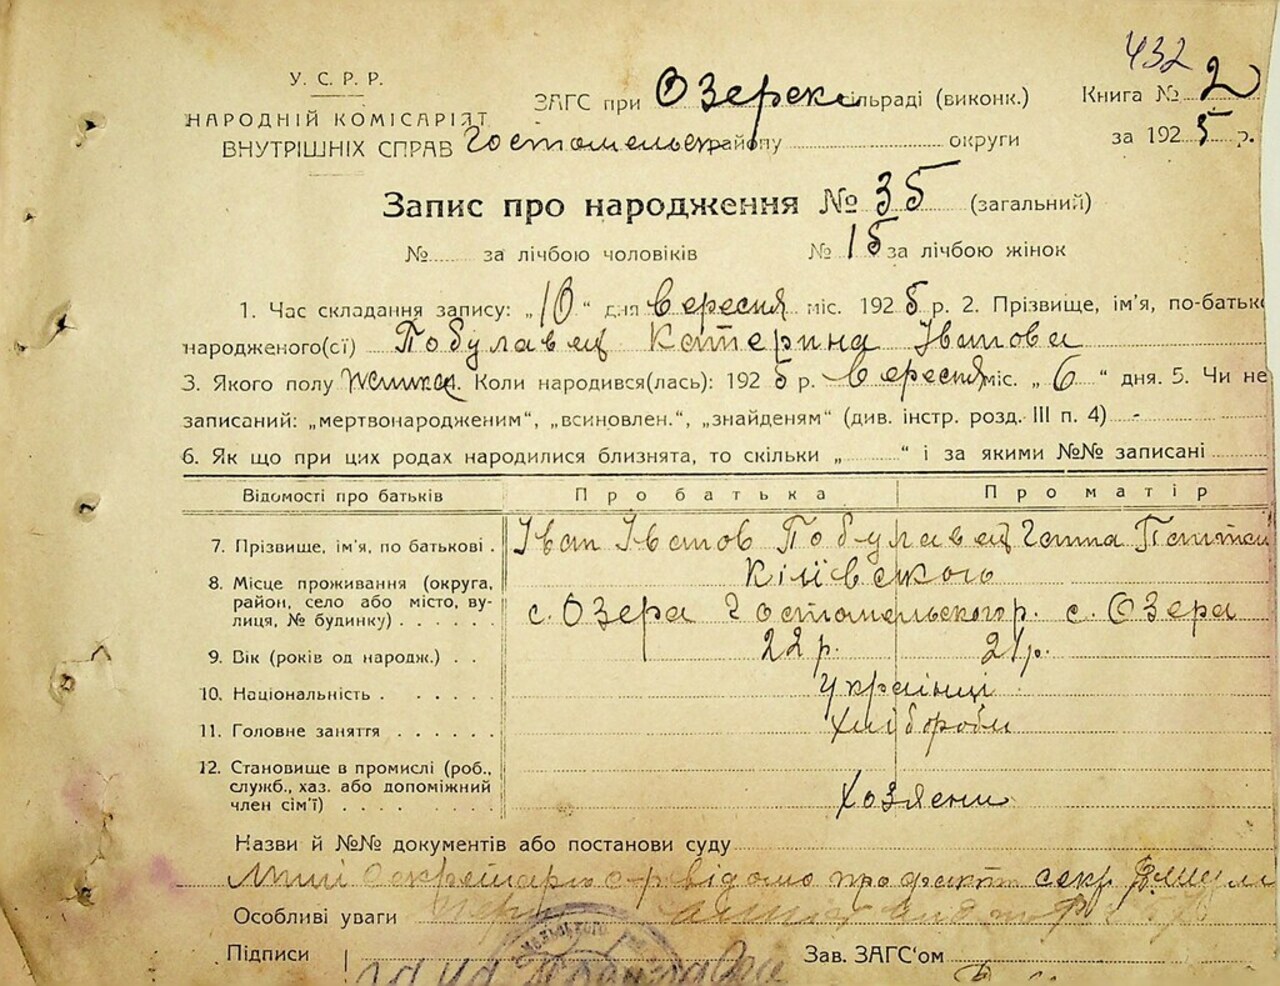 432
У. С. Р. Р.
НАРОДНІЙ КОМІСАРІЯТ
ВНУТРІШНІХ СПРАВ
ЗАГС при Озерск сільраді (виконк.)
Гостомельськ району округи
Книга № 2
за 1925 р.
Запис про народження № 35 (загальний)
№ за лічбою чоловіків № 15 за лічбою жінок
1. Час складання запису: „10“ дня вересня міс. 1925 р. 2. Прізвище, ім’я, по-батьк
народженого(сї) Побулавец Катерина Іванова
3. Якого полу Коли народився(лась): 1925 р. вересня міс. „6“ дня. 5. Чи не
записаний: „мертвонародженим“, „всиновлен.“, „знайденям“ (див. інстр. розд. III п. 4) -
6. Як що при цих родах народилися близнята, то скільки „ “ і за якими №№ записані
Відомості про батьків Про батька Про матір
7. Прізвище, ім’я, по батькові . Іван Іванов Побулавец Ганна
8. Місце проживання (округа, район, село або місто, вулиця, № будинку) . . . . . . Київского
с. Озера Гостомельского р. с. Озера
9. Вік (років од народж.) . . 22 р. 21 р.
10. Національність . . . . . . Українці
11. Головне заняття . . . . . . Хлібороби
12. Становище в промислі (роб., служб., хаз. або допоміжний член сім’ї) . . . . . . Хозяени
Назви й №№ документів або постанови суду
відомо про факт секр
Особливі уваги
Підписи Зав. ЗАГС‘ом